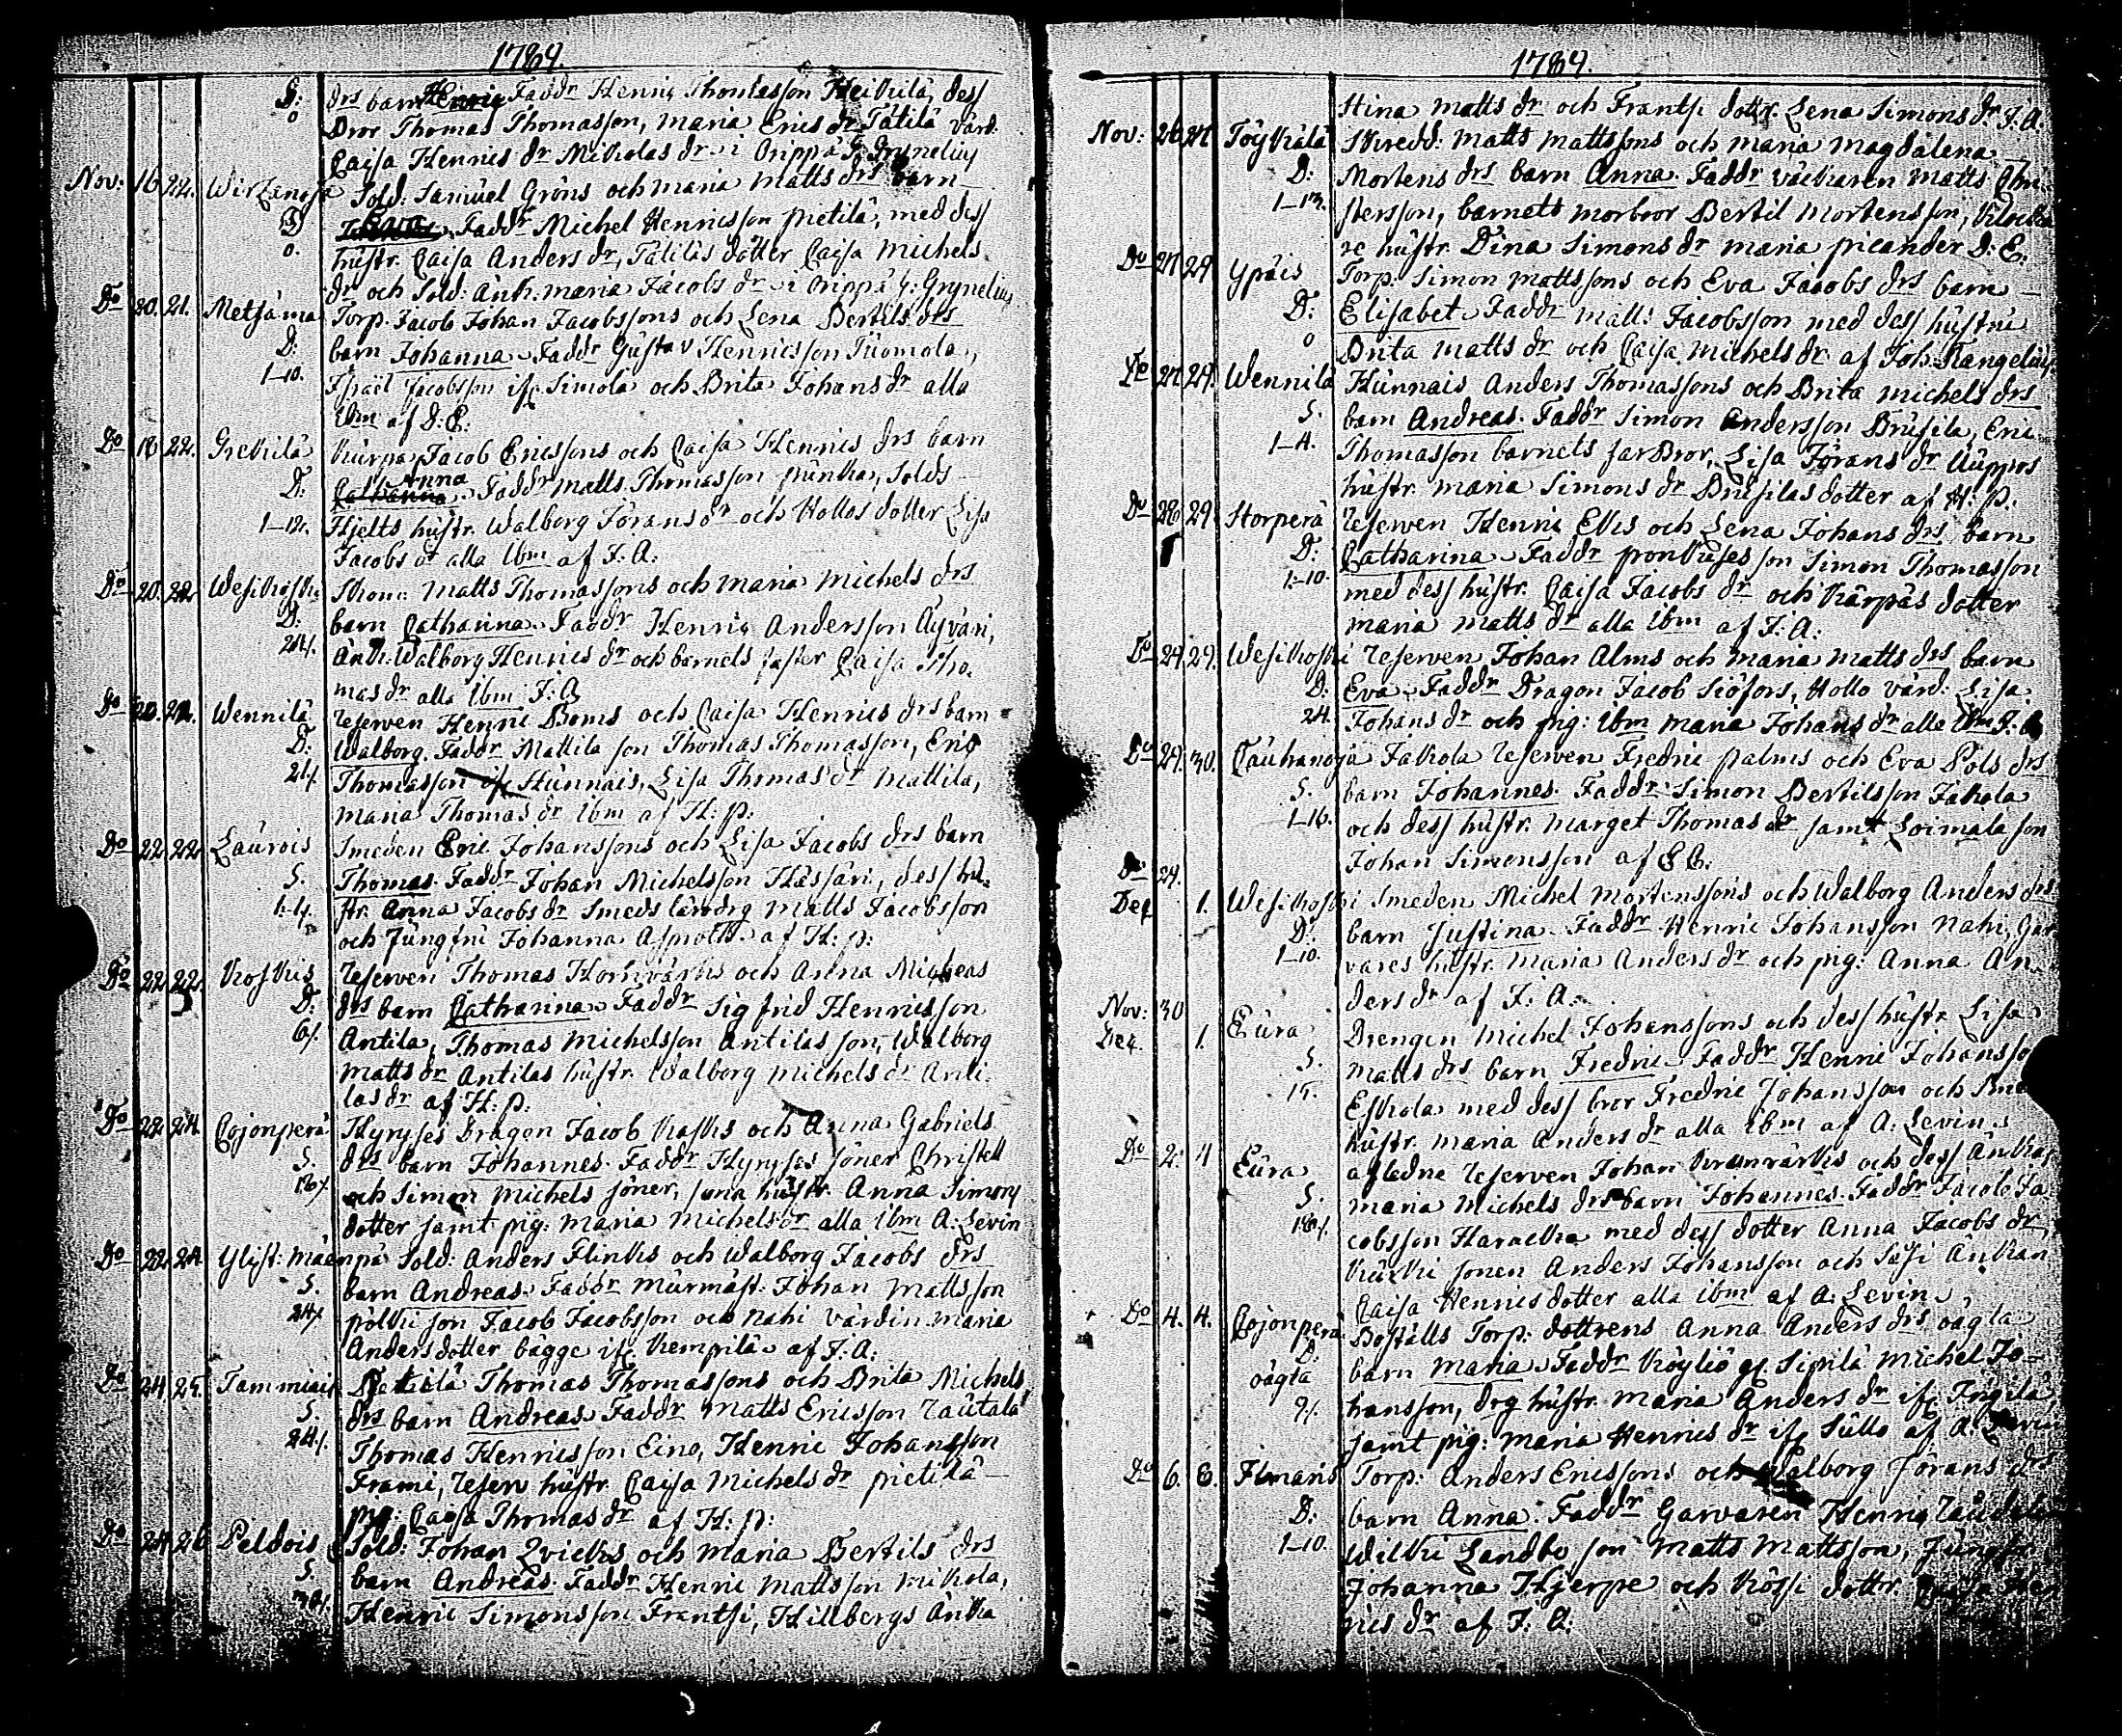 1789.
S: drs barn Henric Faddr Henric Thomasson Heikkilä, dess
o bror Thomas Thomasson, maria Erics dr Tätilä värd.
Caisa Henrics dr Mickolas dr i Orippä G: Grynelius
Nov: 16 22. Wirtzanoja Sold: Samuel Gröns och maria Matts drs barn
Faddr Michel Henricsson pietilä, med dess
o. hustr. Caisa Anders dr, Tätiläs dotter Caisa Michels
dr och Sold: änk: maria Jacobs dr i Orippä G: Grynelius
Do 20. 21. Metsämaa Torp. Jacob Johan Jacobssons och Lena Bertils drs
D: barn Johanna Faddr Gustav Henricsson Tuomola,
1-10. Israël Jacobsson ifr. Simola och Brita Johans dr alla
ibm af D: E:
Do 18 22. Grekkilä Kürpa Jacob Ericssons och Caisa Henrics drs barn
Anna
D: Catharina Faddr Matts Thomasson punka, Solds
1-12. Hjelts hustr. Walborg Jörans dr och Kollas dotter Lisa
Jacobs dr alla ibm af J: A:
Do 20. 22. Wesikoski Skom: Matts Thomassons och maria Michels drs
D: barn Catharina Faddr Henric Andersson Äyväri,
24/. Änk: Walborg Henrics dr och barnets faster Caisa Tho-
mas dr alla ibm J: A
Do 20. 22. Wennilä Reserven Henric Boms och Caisa Henrics drs barn
D: Walborg. Faddr Mattila son Thomas Thomasson, Eric
24/. Thomasson ifr Hunnais, Lisa Thomas dr Mattila,
maria Thomas dr ibm af H: p:
Do 22 22 Laurois Smeden Eric Johanssons och Lisa Jacobs drs barn
S. Thomas. Faddr Johan Michelsson Hässäri, dess hu-
str. Anna Jacobs dr Smeds lärodrg Matts Jacobsson
och Jungfru Johanna Asproth af H: p:
Do 22 22. Koskis Reserven Thomas Hornvärks och Anna Micheas
D: drs barn Catharina Faddr Sigfrid Henricsson
6/. Antila, Thomas Michelsson Antilas son, Walborg
Matts dr Antilas hustr. Walborg Michels dr Anti-
las dr af H: p:
Do 22 24. Cojonperä Hyryses Dragon Jacob Kasks och Anna Gabriels
S. drs barn Johannes. Faddr Hyryses söner Christer
18/. och Simon Michels söner, sona hustr. Anna Simons
dotter samt pig: maria Michels dr alla ibm A: Levin
Do 22 24. Ylist: mäenpä Sold: Anders Flinks och Walborg Jacobs drs
S. barn Andreas. Faddr Murmäst. Johan Mattsson
24/. pölkki son Jacob Jacobsson och Nahi värdin maria
Andersdotter bägge ifr Kempilä af J: A:
Do 24 25. Tammiais Pietilä Thomas Thomassons och Brita Michels
S. drs barn Andreas Faddr Matts Ericsson Rautala
24/. Thomas Henricsson Eino, Henric Johansson
Frami, Reserv hustr. Caisa Michels dr pietilä
pig: Caisa Thomas dr af H: p:
Do 24 26 Peldois Sold: Johan Qvicks och maria Bertils drs
S. barn Andreas. Faddr Henric Mattsson Mikola,
Henric Simonsson Frantsi, Hillbergs änka
1789.
Stina Matts dr och Frantsi dottr. Lena Simons dr J: A.
Nov: 26 27 Töykkälä Skredd: Matts Mattssons och maria magdalena
D: Mortens drs barn Anna. Faddr väckaren Matts Chri-
1-13. stersson, barnets morbror Bertil Mortensson, Klocka-
re hustr. Dina Simons dr maria picander D: E.
Do 27 29 Ypäis Torp: Simon Mattssons och Eva Jacobs drs barn
D: Elisabet Faddr Matt: Jacobsson med dess hustru
o Brita Matts dr och Caisa Michels dr af Joh: Rangelius
Do 27 29. Wennilä Hunnais Anders Thomassons och Brita Michels drs
S. barn Andreas. Faddr Simon Andersson Brusila, Eric
1-4. Thomasson barnets farbror, Lisa Jörans dr Auppos
hustr. maria Simons dr Brusilas dotter af H: p:
Do 28 29 Horperä Reserven Henric Ekis och Lena Johans drs barn
D: Catharina Faddr pronkases son Simon Thomasson
1-10. med dess hustr. Caisa Jacobs dr och Kärpäs dotter
maria Matts dr alla ibm af J: A:
Do 29 29. Wesikoski Reserven Johan Alms och maria Matts drs barn
D: Eva Faddr Dragon Jacob Siöfors, Hollo värd: Lisa
24. Johans dr och pig: ibm maria Johans dr alla ibm J:
Do 29. 30. Cauhanoja Jakola Reserven Fredric palms och Eva Pols drs
S. barn Johannes. Faddr Simon Bertilsson Jakola
1-16. och dess hustr. marget Thomas dr samt Loimala son
Johan Simonsson af E E:
Do 29.
Dec 1. Wesikoski Smeden Michel Mortenssons och Walborg Anders drs
D: barn Justina. Faddr Henric Johansson Nahi, Gar-
1-10. vares hustr. maria Anders dr och pig: Anna An-
ders dr af J: A:
Nov: 30
Dec. 1. Eura Drengen Michel Johanssons och dess hustr Lisa
S. Matts drs barn Fredric Faddr Henric Johansson
15. Eskola med dess bror Fredric Johansson och
hustr. maria Anders dr alla ibm af A: Levin
Do 2. 4 Eura afledne Reserven Johan Kranvärks och dess Änkas
S. maria Michels drs barn Johannes. Faddr Jacob Ja-
18/. cobsson Haracka med dess dotter Anna Jacobs dr,
Kücki sonen Anders Johansson och Sasi Änkan
Caisa Henricsdotter alla ibm af A: Levin
Do 4. 4. Cojonperä Boställs Torp: dottrens Anna Anders drs oägta
D: barn maria Faddr Köyliö gl. Sipilä Michel Jo-
oägta
9/. hansson, drg hustr. maria Anders dr ifr Jngilä,
samt pig: maria Henrics dr ifr Sullo af A: Levin
Do 6. 6. Ilmaris Torp: Anders Ericssons och Walborg Jörans drs
D: barn Anna. Faddr Garvaren Henric
1-10. Wilcki Landbo son Matts Mattsson, Jungfr
Johanna Hjerpe och Kössi dottr. Hen-
rics dr af J: A: